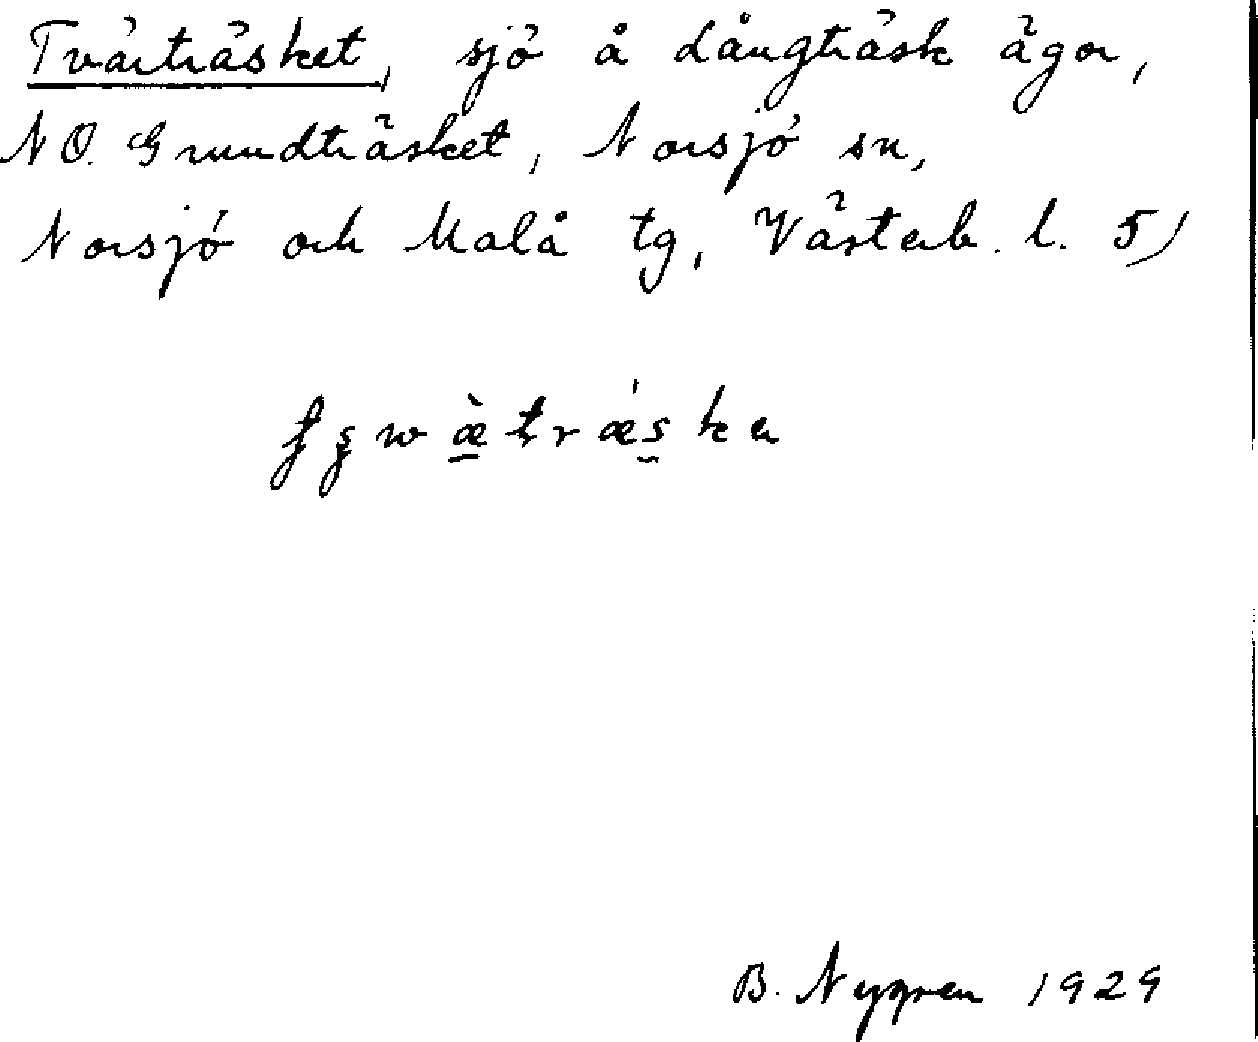 Tvärträsket, sjö å Långträsk ägor,
NO. Grundträsket, Norsjö sn,
Norsjö och Malå tg, Västerb. l. 5)
B. Nygren 1929